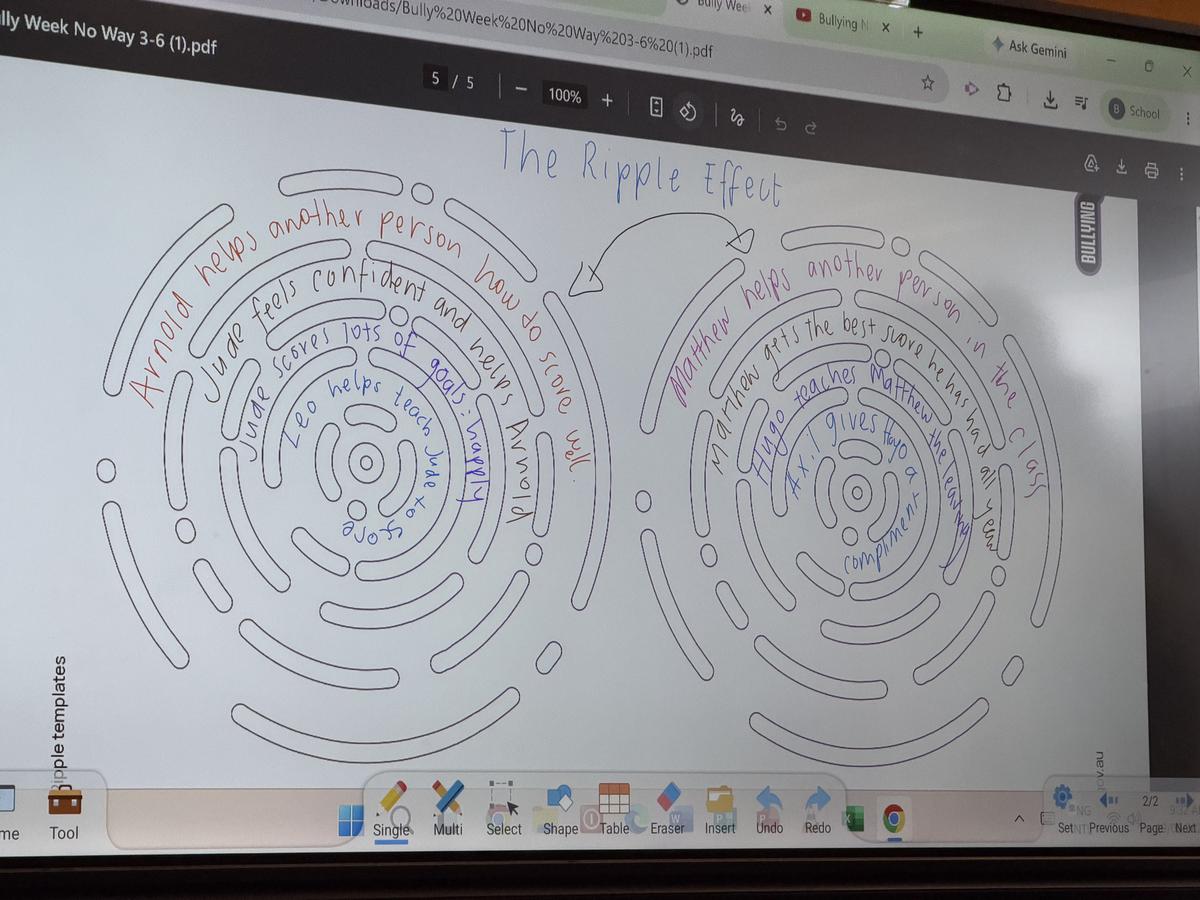 lly Week No Way 3-6 (1).pdf
ownloads/Bully%20Week%20No%20Way%203-6%20(1).pdf
Bully Wee
Bullying N
Ask Gemini
5 / 5
100%
B School
The Ripple Effect
BULLYING
Arnold helps another person how to score well.
Jude feels confident and helps Arnold
Jude scores lots of goals: happy
Leo helps teach Jude to score
Matthew helps another person in the class
Matthew gets the best score he has had all year
Hugo teaches Matthew the learning
Axil gives Hugo a compliment
ipple templates
ov.au
me
Tool
Single
Multi
Select
Shape
Table
Eraser
Insert
Undo
Redo
Set
Previous
2/2
Page
Next